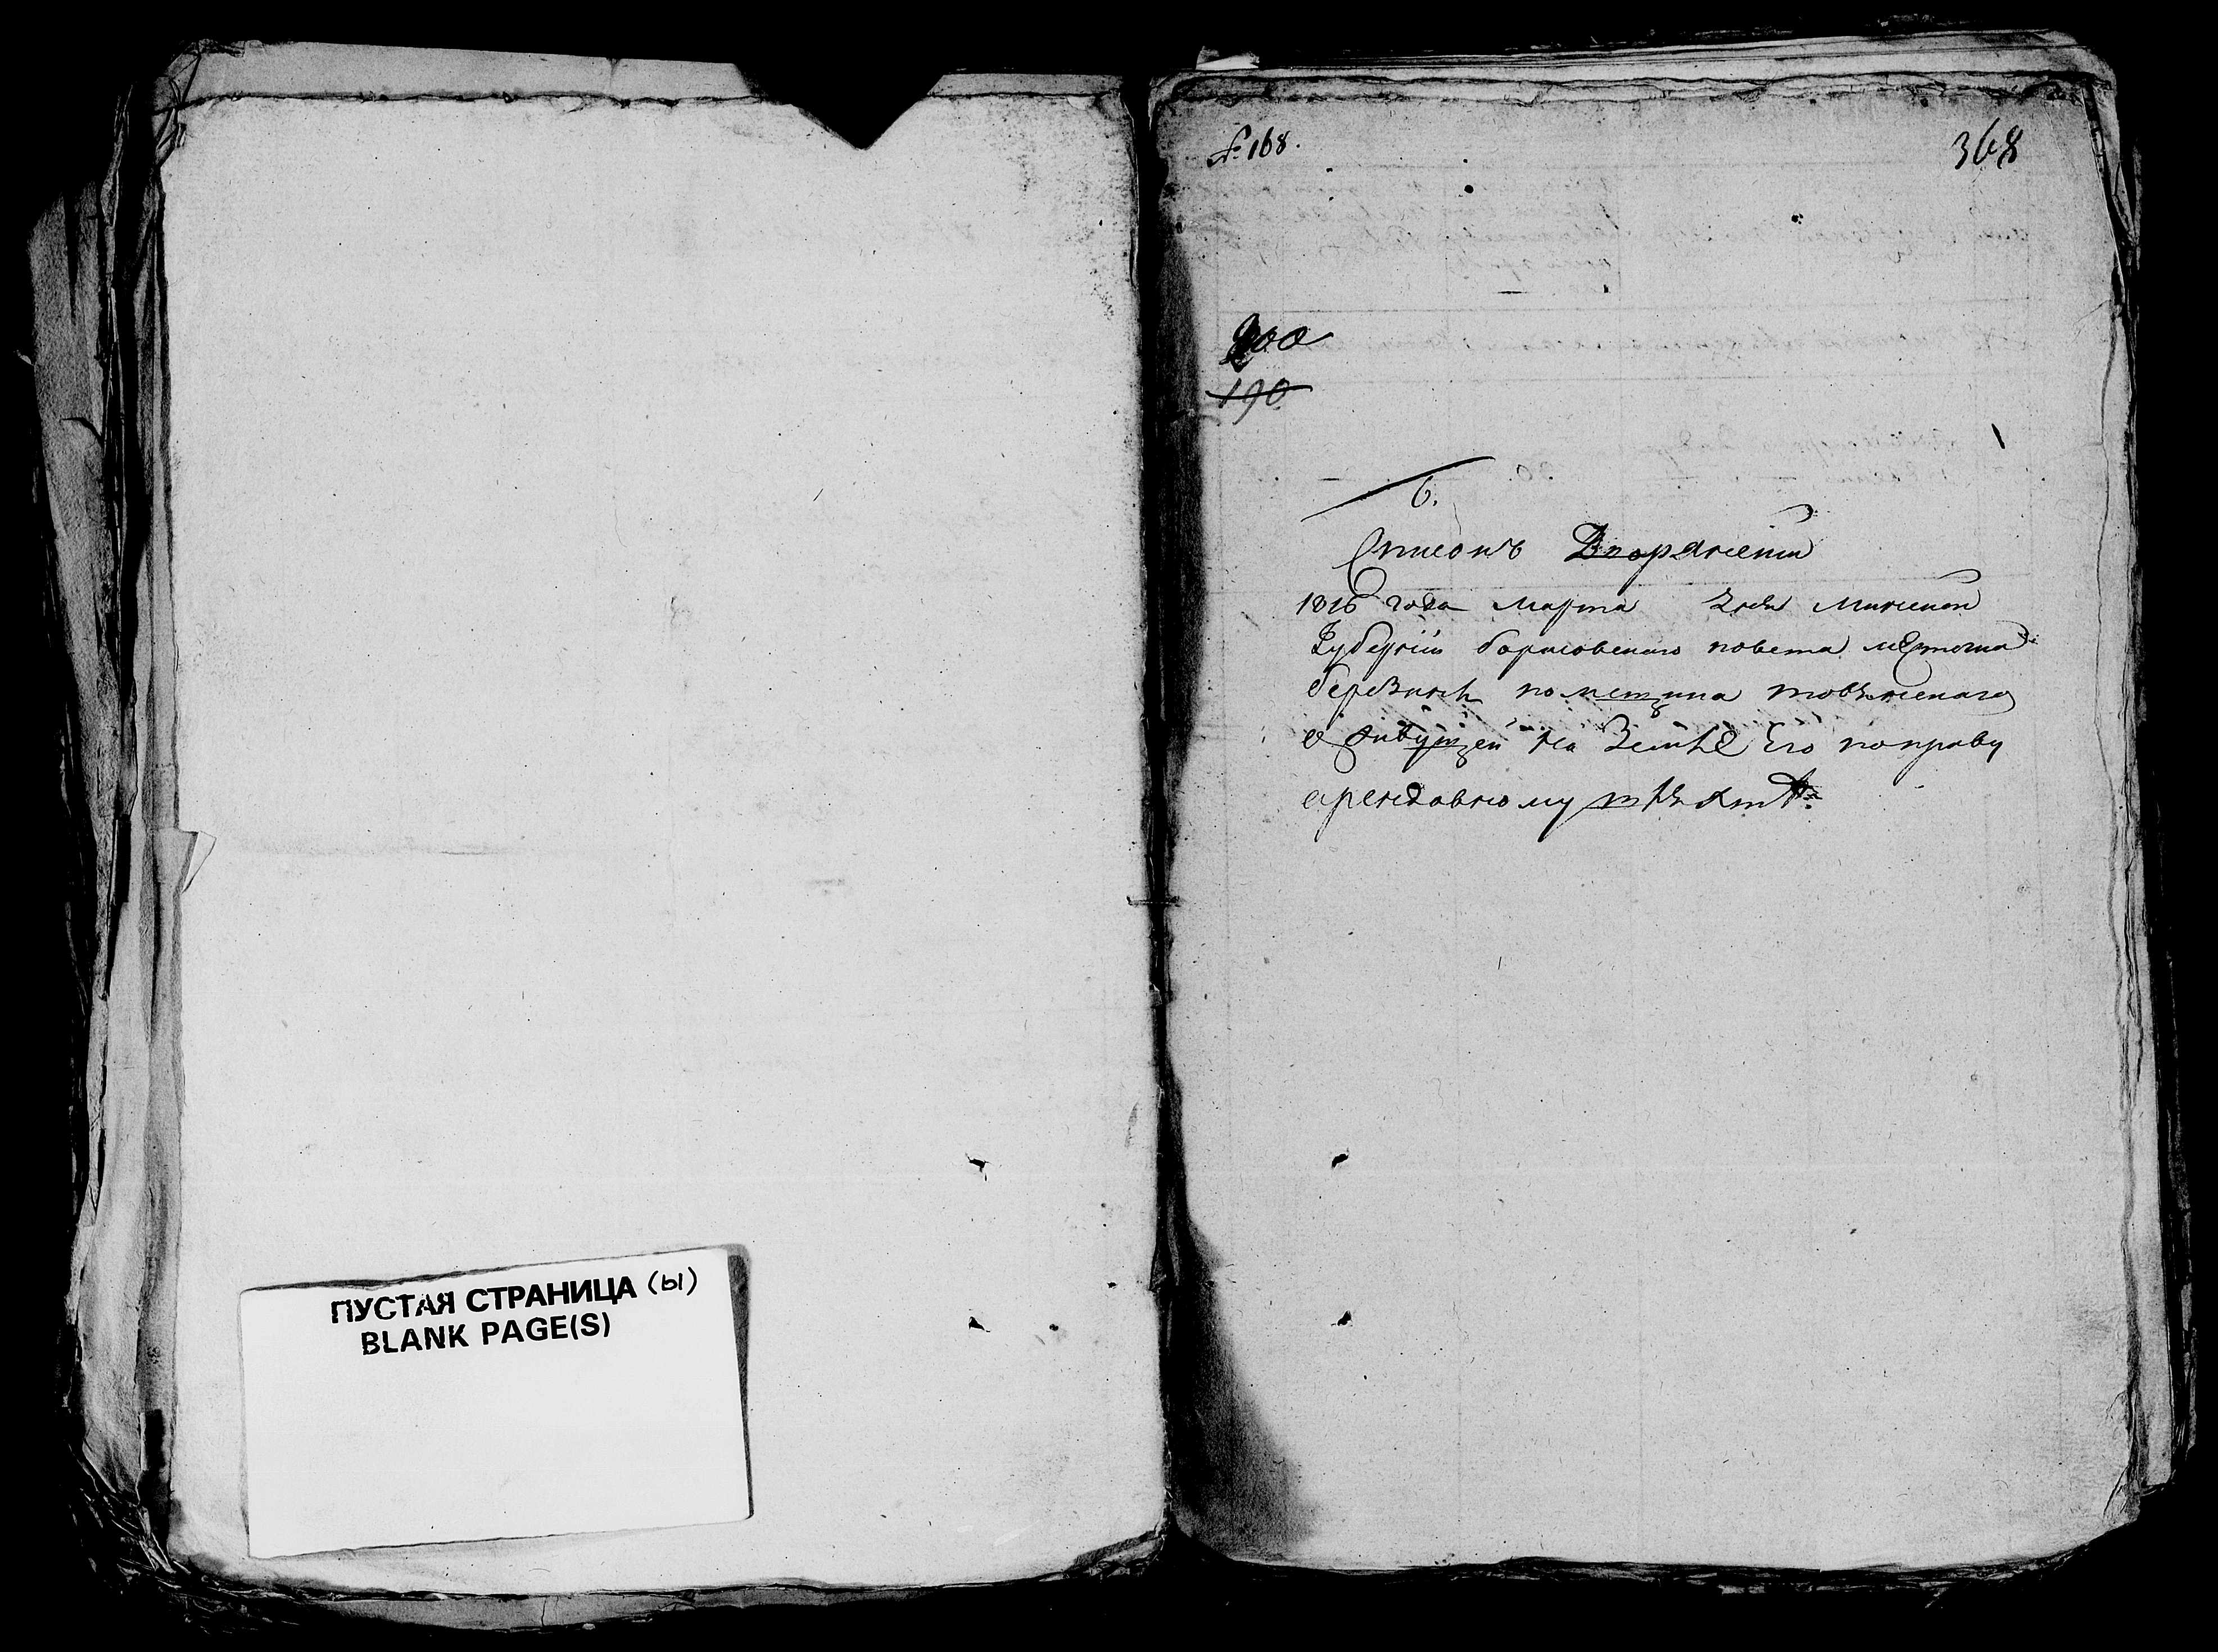 ПУСТАЯ СТРАНИЦА (ы)
BLANK PAGE(S)
№ 168.
368
200
190
6.
Списокъ Дворянский
1816 года марта дня Минской
Губернии борисовского повета местечка
березина помещика
живущей на Земле Его по праву
арендовному